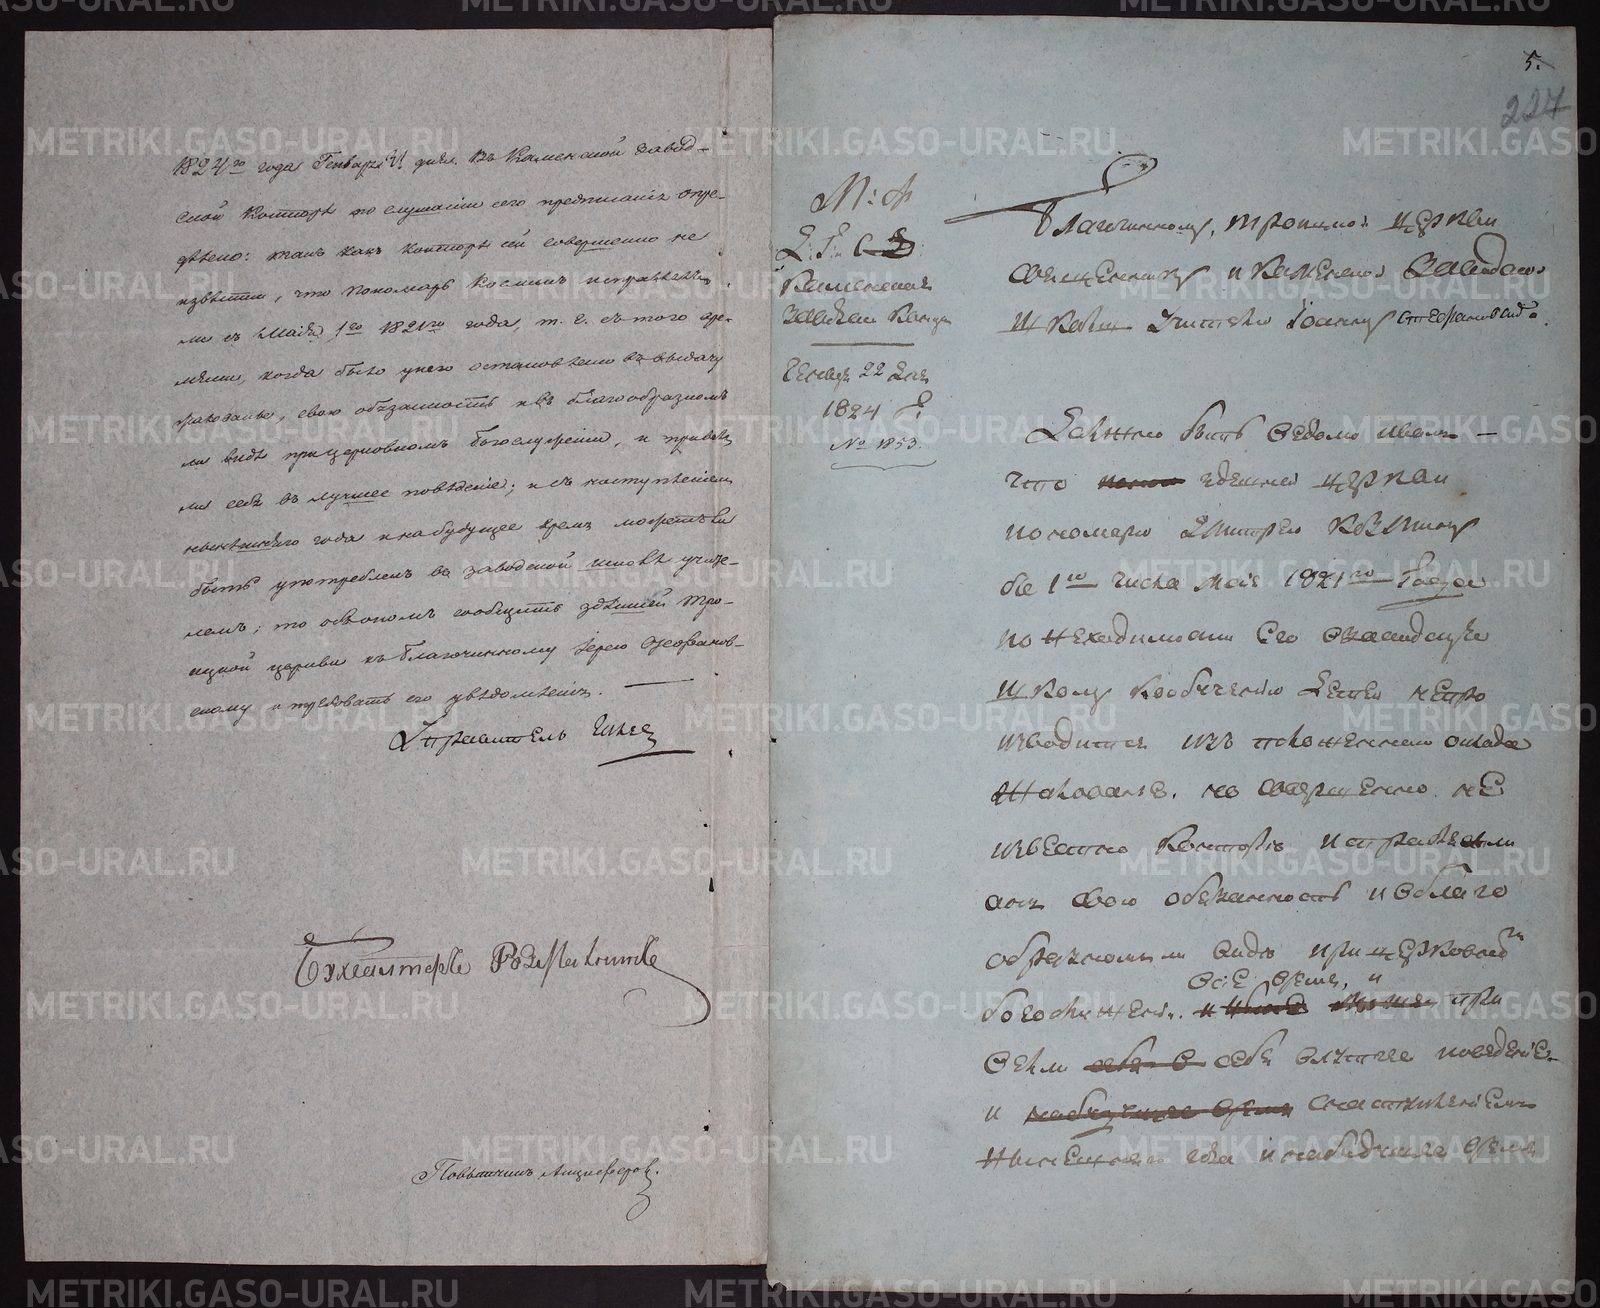 1824го года Генваря 11 дня. Въ Каменской завод-
ской Конторѣ по слушаніи сего предписанія опре-
дѣлено: какъ конторѣ сей совершенно не
извѣстно, что Пономарь Косминъ исправлялъ
ли съ Маія 1го 1821го года, т. е. съ того вре-
мени, когда было у него остановлено въ выдачу
жалованье, свою обязанность и въ благообразномъ
ли видѣ при церковномъ богослуженіи, и привелъ
ли себя въ лучшее поведѣніе; и съ наступленіемъ
нынѣшняго года и на будущее время можетъ ли
быть употребленъ въ заводской школѣ учите-
лемъ; то объ ономъ сообщить здѣшней Тро-
ицкой церкви къ благочинному Іерею
скому и требовать его увѣдомленія.
Управитель
Бухгалтеръ
Повытчикъ Анциферовъ.
5.
227
М: Ф
Д: Г: С
Каменская
Заводская Контора
Генваря 22 дня
1824 г.
№ 1853.
Благочинному, Троицкой церкви
священнику и Каменской Заводской
школы учителю Іоанну
Должно быть вѣдомо вамъ
что здешней церкви
пономарю Дмитрею Козмину
съ 1го числа маія 1821го года
по нехадимости его въ заводскую
школу къ обученію детей не про
изводится изъ положеннаго оклада
жалованье. но совершенно не
извѣстно Конторѣ исправлялъ ли
онъ свою обязанность и въ благо
образномъ ли видѣ при церковномъ
всіе время, и
богослуженіи. при
велъ ли себя въ лутчее поведеніе
и съ наступленіемъ
нынешняго года и на будущее время